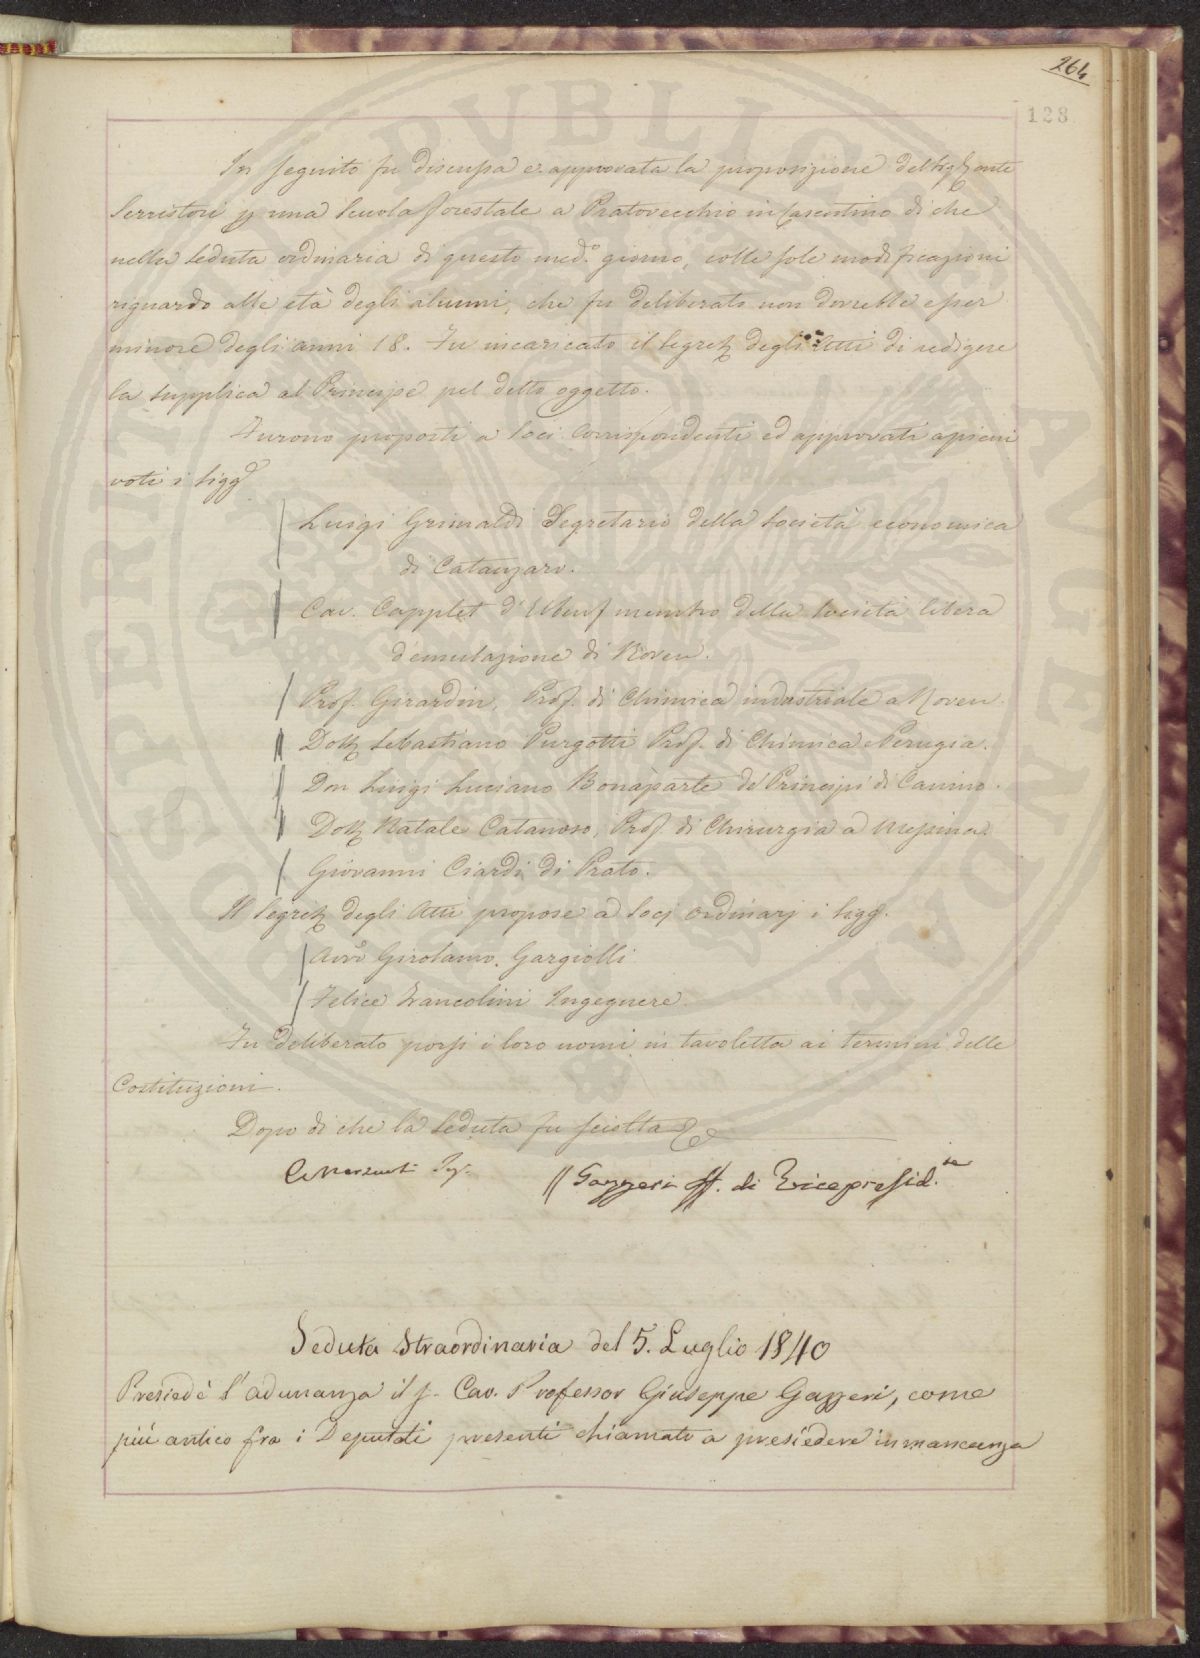 264
128
In seguito fu discussa e approvata la proposizione del Sig. Conte
Serristori p una Scuola forestale a Pratovecchio in Casentino di che
nella Seduta ordinaria di questo med.o giorno, colle sole modificazioni
riguardo alle età degli alunni, che fu deliberato non dovrebbe esser
minore degli anni 18. Fu incaricato il Segret. degli Atti di redigere
la supplica al Principe pel detto oggetto.
Furono proposti a Soci Corrispondenti ed approvati a pieni
voti i Sigg.
Luigi Grimaldi Segretario della Società economica
di Catanzaro.
Cav. Capplet d'Elbeuf membro della Società libera
d'emulazione di Roven.
Prof. Girardin, Prof. di Chimica industriale a Roven.
Dott. Sebastiano Purgotti Prof. di Chimica Perugia.
Don Luigi Luciano Bonaparte de' Principi di Canino.
Dott. Natale Catanoso, Prof. di Chirurgia a Messina.
Giovanni Ciardi di Prato.
Il Segret. degli Atti propose a Socj Ordinarj i Sigg.
Avv.o Girolamo Gargiolli
Felice Francolini Ingegnere.
Fu deliberato porsi i loro nomi in tavoletta ai termini delle
Costituzioni.
Dopo di che la Seduta fu sciolta
Gazzeri ff. di Vicepresid.te
Seduta Straordinaria del 5. Luglio 1840
Presiedè l'adunanza il S. Cav. Professor Giuseppe Gazzeri, come
più antico fra i Deputati presenti chiamato a presiedere in mancanza
PVBLICAE
AVGENDAE
PROSPERITATI